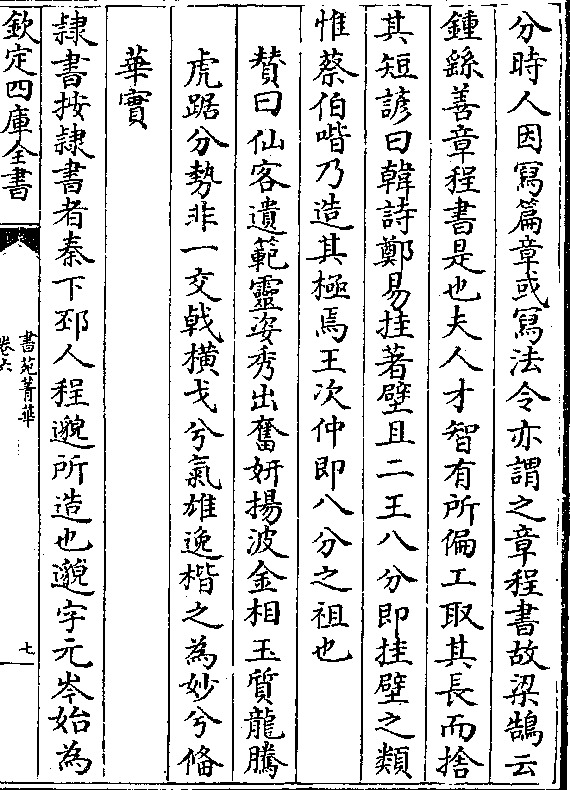 分時人因寫篇章或寫法令亦謂之章程書故梁鵠云
鍾繇善章程書是也夫人才智有所偏工取其長而捨
其短諺曰韓詩鄭易挂著壁且二王八分即挂壁之類
惟蔡伯喈乃造其極焉王次仲即八分之祖也
賛曰仙客遺範靈姿秀出奮妍揚波金相玉質龍騰
虎踞兮勢非一交戟橫戈兮氣雄逸楷之為妙兮俻
華實
隸書按隸書者秦下邳人程邈所造也邈字元岑始為
欽定四庫全書
書苑菁華
卷六
七